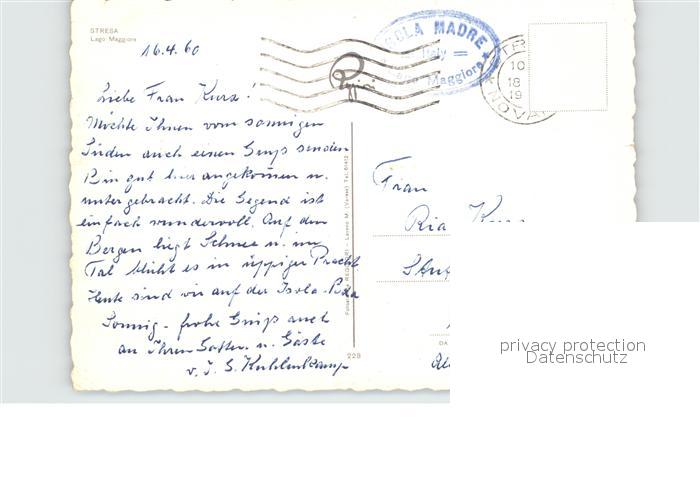 STRESA
Lago Maggiore
16.4.60
Liebe Frau Kurz!
Möchte Ihnen vom sonnigen
Süden auch einen Gruß senden
Bin gut hier angekommen u.
untergebracht. Die Gegend ist
einfach wundervoll. Auf den
Bergen liegt Schnee u. im
Tal blüht es in üppiger Pracht
Heute sind wir auf der Isola-
Sonnig - frohe Grüße auch
an Ihren Gatten u. Gäste
v. I. S. Kuhlenkamp
228
ISOLA MADRE
Italy
Maggiore
10
18
19
NOVA
Frau
Ria Kurz
privacy protection
Datenschutz